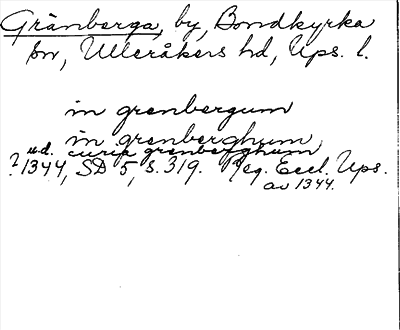 Gränberga, by, Bondkyrka
sn, Ulleråkers hd, Ups. l.
in grenbergum
in grenberghum
curia grenberghum
u.d.
? 1344, SD 5, s. 319. Reg. Eccl. Ups.
av 1344.